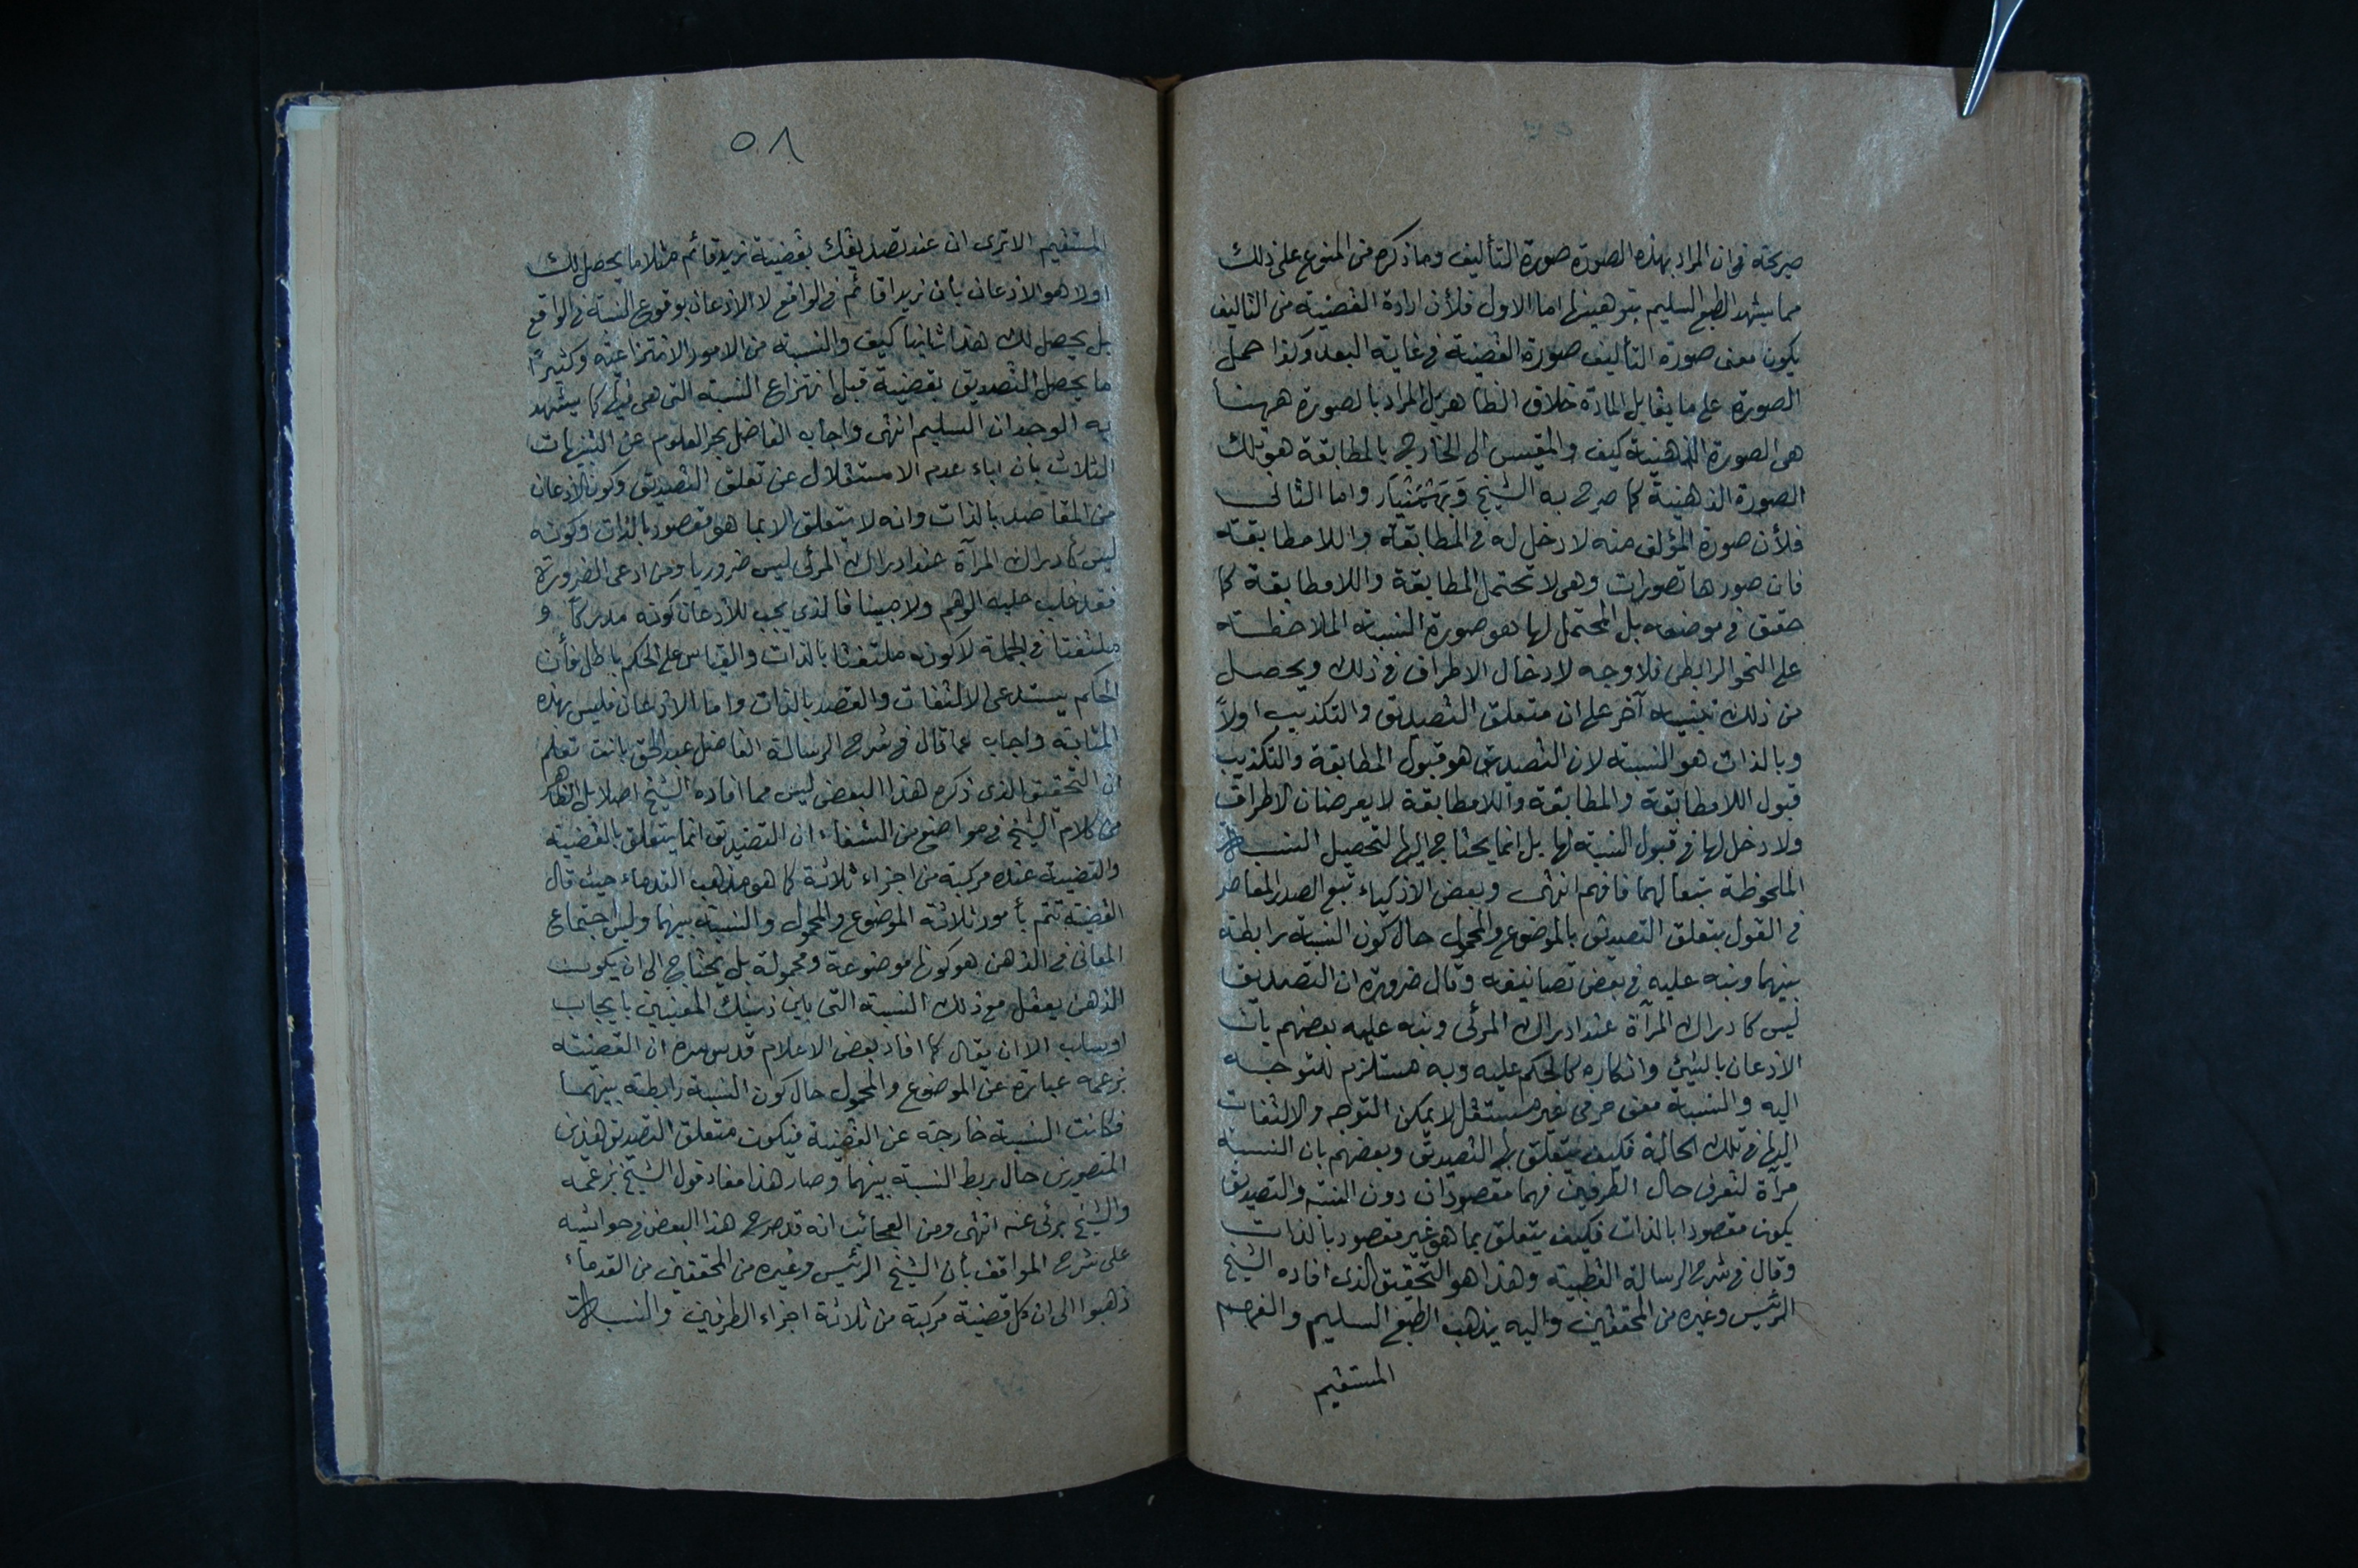 صريحة فى ان المراد بهذه الصورة صورة التأليف وما ذكره من المنوع على ذلك
مما يشهد الطبع السليم بتوهينها اما الاول فلأن ارادة القضية من التاليف
يكون معنى صورة التأليف صورة القضية فى غاية البعد وكذا حمل
الصورة على ما يقابل المادة خلاف الظاهر بل المراد بالصورة ههنا
هى الصورة الذهنية كيف والمقيس الى الخارج بالمطابقة هو تلك
الصورة الذهنية كما صرح به الشيخ وَبَهْمَنْيَار واما الثانى
فلأن صورة المؤلف منه لا دخل له فى المطابقة واللامطابقة
فان صورها تصورات وهى لا تحتمل المطابقة واللامطابقة كما
حقق فى موضعه بل المحتمل لها هو صورة النسبة الملاحظة
على النحو الرابطى فلا وجه لادخال الاطراف فى ذلك ويحصل
من ذلك تنبيه آخر على ان متعلق التصديق والتكذيب اولاً
وبالذات هو النسبة لان التصديق هو قبول المطابقة والتكذيب
قبول اللامطابقة والمطابقة واللامطابقة لا يعرضان الاطراف
ولا دخل لها فى قبول النسبة لها بل انما يحتاج اليها لتحصيل النسبة
الملحوظة تبعا لهما فافهم انتهى وبعض الاذكياء تبع الصدر المعاصر
فى القول بتعلق التصديق بالموضوع والمحمول حال كون النسبة رابطة
بينهما ونبه عليه فى بعض تصانيفه وقال ضرورة ان التصديق
ليس كادراك المرآة عند ادراك المرئى ونبه عليه بعضهم بان
الاذعان بالشئ وانكاره كالحكم عليه وبه مستلزم للتوجه
اليه والنسبة معنى حرفى غير مستقل لا يمكن التوجه والالتفات
اليها فى تلك الحالة فكيف يتعلق بها التصديق وبعضهم بان النسبة
مرآة لتعرف حال الطرفين فهما مقصودان دون النسبة والتصديق
يكون مقصودا بالذات فكيف يتعلق بما هو غير مقصود بالذات
وقال فى شرح الرسالة القطبية وهذا هو التحقيق الذى افاده الشيخ
الرئيس وغيره من المحققين واليه يذهب الطبع السليم والفهم
المستقيم
٥٨
المستقيم الا ترى ان عند تصديقك بقضية زيد قائم مثلا ما يحصل لك
اولا هو الاذعان بان زيدا قائم فى الواقع لا الاذعان بوقوع النسبة فى الواقع
بل يحصل لك هذا ثانيا كيف والنسبة من الامور الانتزاعية وكثيرًا
ما يحصل التصديق بقضية قبل انتزاع النسبة التى هى فيها كما يشهد
به الوجدان السليم انتهى واجاب الفاضل بحر العلوم عن التنبيهات
الثلاث بان اباء عدم الاستقلال عن تعلق التصديق وكون الاذعان
من المقاصد بالذات وانه لا يتعلق الا بما هو مقصود بالذات وكونه
ليس كادراك المرآة عند ادراك المرئى ليس ضروريا ومن ادعى الضرورة
فقد غلب عليه الوهم ولا مبينا فالذى يجب للاذعان كونه مدركاً و
ملتفتا فى الجملة لا كونه ملتفتا بالذات والقياس على الحكم باطل فأن
الحكم يستدعى الالتفات والقصد بالذات واما الاذعان فليس بهذه
المثابة واجاب عما قال فى شرح الرسالة الفاضل عبد الحق بانت تعلم
ان التحقيق الذى ذكره هذا البعض ليس مما افاده الشيخ اصلا بل الظاهر
من كلام الشيخ فى مواضع من الشفاء ان التصديق انما يتعلق بالقضية
والقضية عنده مركبة من اجزاء ثلاثة كما هو مذهب القدماء حيث قال
القضية تتم بأمور ثلاثة الموضوع والمحمول والنسبة بينهما وليس اجتماع
المعانى فى الذهن هو كونها موضوعة ومحمولة بل يحتاج الى ان يكون
الذهن يعقل مع ذلك النسبة التى بين ذينك المعنيين بايجاب
او سلب الا ان يقال كما افاد بعض الاعلام قدس سره ان القضية
بزعمه عبارة عن الموضوع والمحمول حال كون النسبة رابطة بينهما
فكانت النسبة خارجة عن القضية فيكون متعلق التصديق هذين
المتصورين حال ربط النسبة بينهما وصار هذا مفاد قول الشيخ بزعمه
والشيخ برئى عنه انتهى ومن العجائب انه قد صرح هذا البعض فى حواشيه
على شرح المواقف بأن الشيخ الرئيس وغيره من المحققين من القدماء
ذهبوا الى ان كل قضية مركبة من ثلاثة اجزاء الطرفين والنسبة